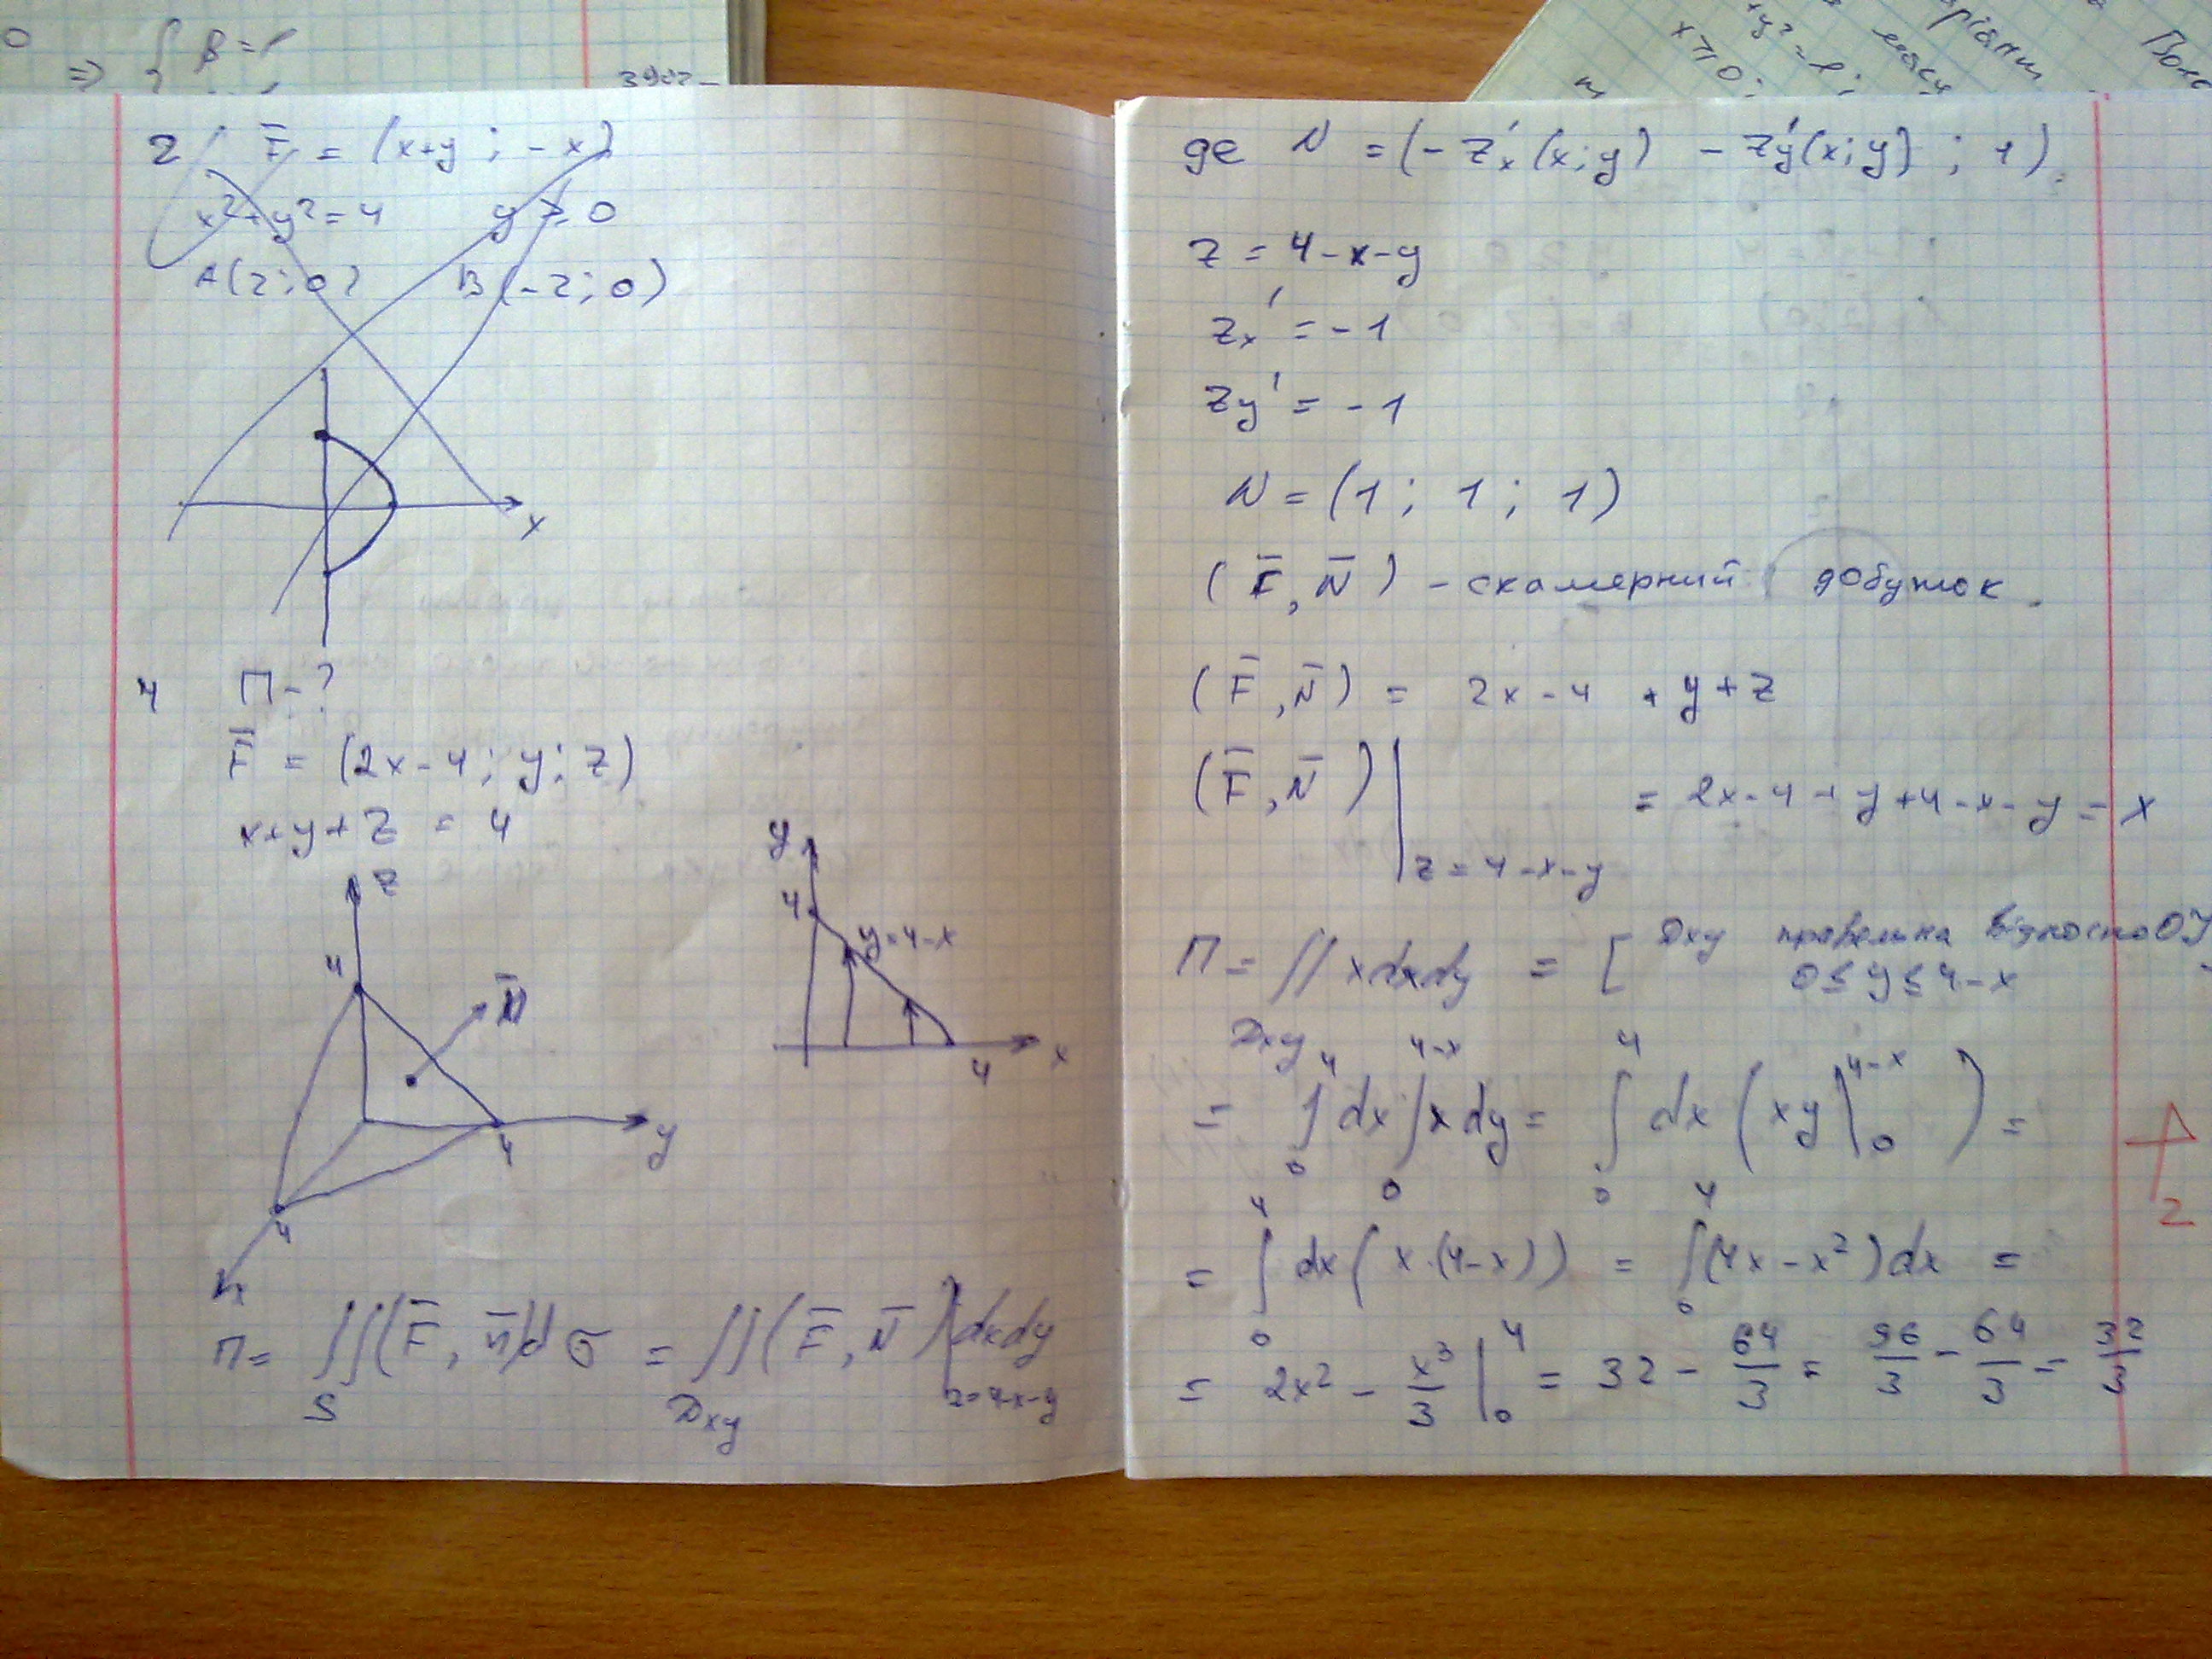 => { B=1
2) F̄ = (x+y ; -x)
x²+y²=4 y ≥ 0
A(2;0) B(-2;0)
x
4 П-?
F̄ = (2x-4; y; z)
x+y+z = 4
z
4
N̄
4
y
4
x
y
4
y=4-x
4
x
П= ∬(F̄, n̄)dσ = ∬(F̄, N̄)|dxdy
S Dxy z=4-x-y
де N = (-z'x(x;y) - z'y(x;y) ; 1)
z = 4-x-y
zx' = -1
zy' = -1
N = (1; 1; 1)
(F̄, N̄) - скалярний добуток.
(F̄, N̄) = 2x-4 + y+z
(F̄, N̄)| = 2x-4+y+4-x-y = x
z=4-x-y
П= ∬ xdxdy = [ Dxy правильна відносно OY
Dxy 0≤y≤4-x
= ∫₀⁴ dx ∫₀⁴⁻ˣ x dy = ∫₀⁴ dx (xy|₀⁴⁻ˣ) =
= ∫₀⁴ dx(x·(4-x)) = ∫₀⁴(4x-x²)dx =
= 2x² - x³/3 |₀⁴ = 32 - 64/3 = 96/3 - 64/3 = 32/3
2
x≥0;